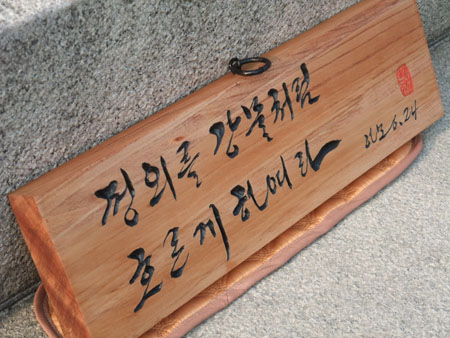 정의를 강물처럼
흐르게 하여라
2012. 6. 24